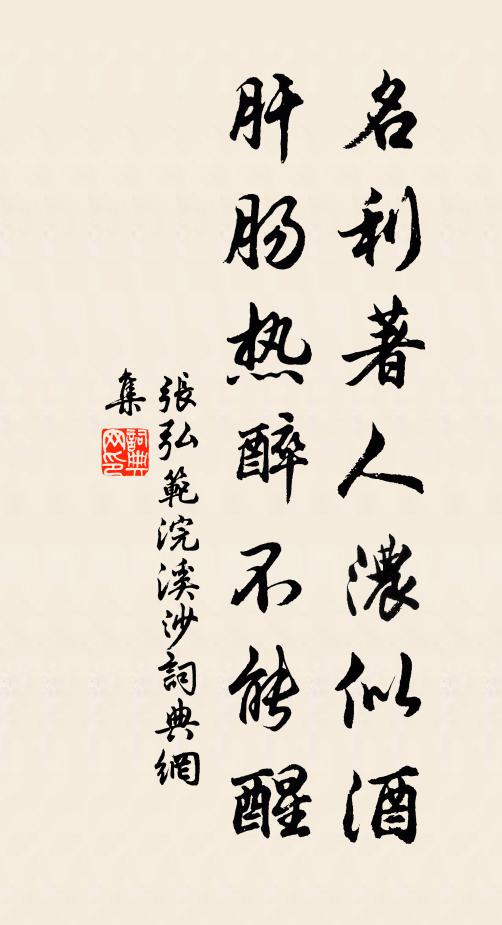 名利著人濃似酒
肝肠热醉不能醒
張弘範浣溪沙詞典網
集
詞典網印